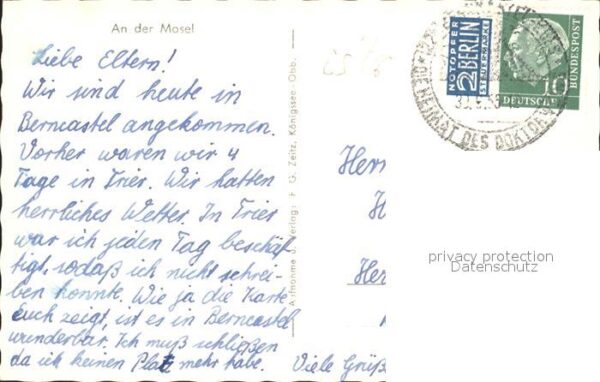 An der Mosel
Liebe Eltern!
Wir sind heute in
Berncastel angekommen.
Vorher waren wir 4
Tage in Trier. Wir hatten
herrliches Wetter. In Trier
war ich jeden Tag beschäf-
tigt, sodaß ich nicht schrei-
ben konnte. Wie ja die Karte
Euch zeigt, ist es in Berncastel
wunderbar. Ich muß schließen
da ich keinen Platz mehr habe.
Viele Grüß
Aufnahme u. Verlag: F. G. Zeitz, Königssee Obb.
NOTOPFER
2 BERLIN
STEUERMARKE
10
DEUTSCHE
BUNDESPOST
DIE HEIMAT DES DOKTOR
Herr
H
Her
privacy protection
Datenschutz